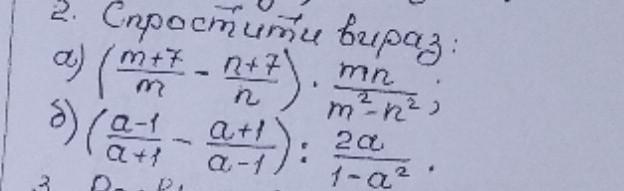 2. Спростити вираз:
а) ((m+7)/m - (n+7)/n) · mn/(m²-n²);
б) ((a-1)/(a+1) - (a+1)/(a-1)) : 2a/(1-a²).
3.